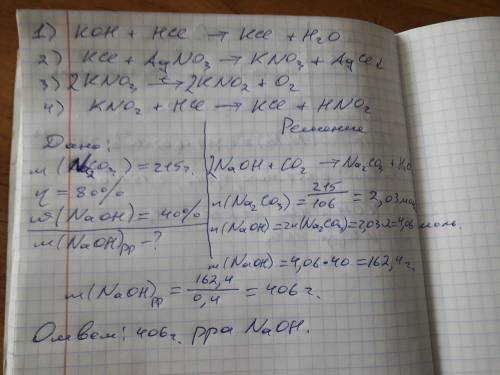 1) KOH + HCl → KCl + H₂O
2) KCl + AgNO₃ → KNO₃ + AgCl↓
3) 2KNO₃ → 2KNO₂ + O₂
4) KNO₂ + HCl → KCl + HNO₂
Дано:
m(Na₂CO₃) = 215г.
η = 80%
ω(NaOH) = 40%
m(NaOH)рр - ?
Решение
2NaOH + CO₂ → Na₂CO₃ + H₂O
n(Na₂CO₃) = 215/106 = 2,03 моль
n(NaOH) = 2n(Na₂CO₃) = 2,03·2 = 4,06 моль.
m(NaOH) = 4,06·40 = 162,4 г.
m(NaOH)рр = 162,4/0,4 = 406 г.
Ответ: 406 г. рра NaOH.